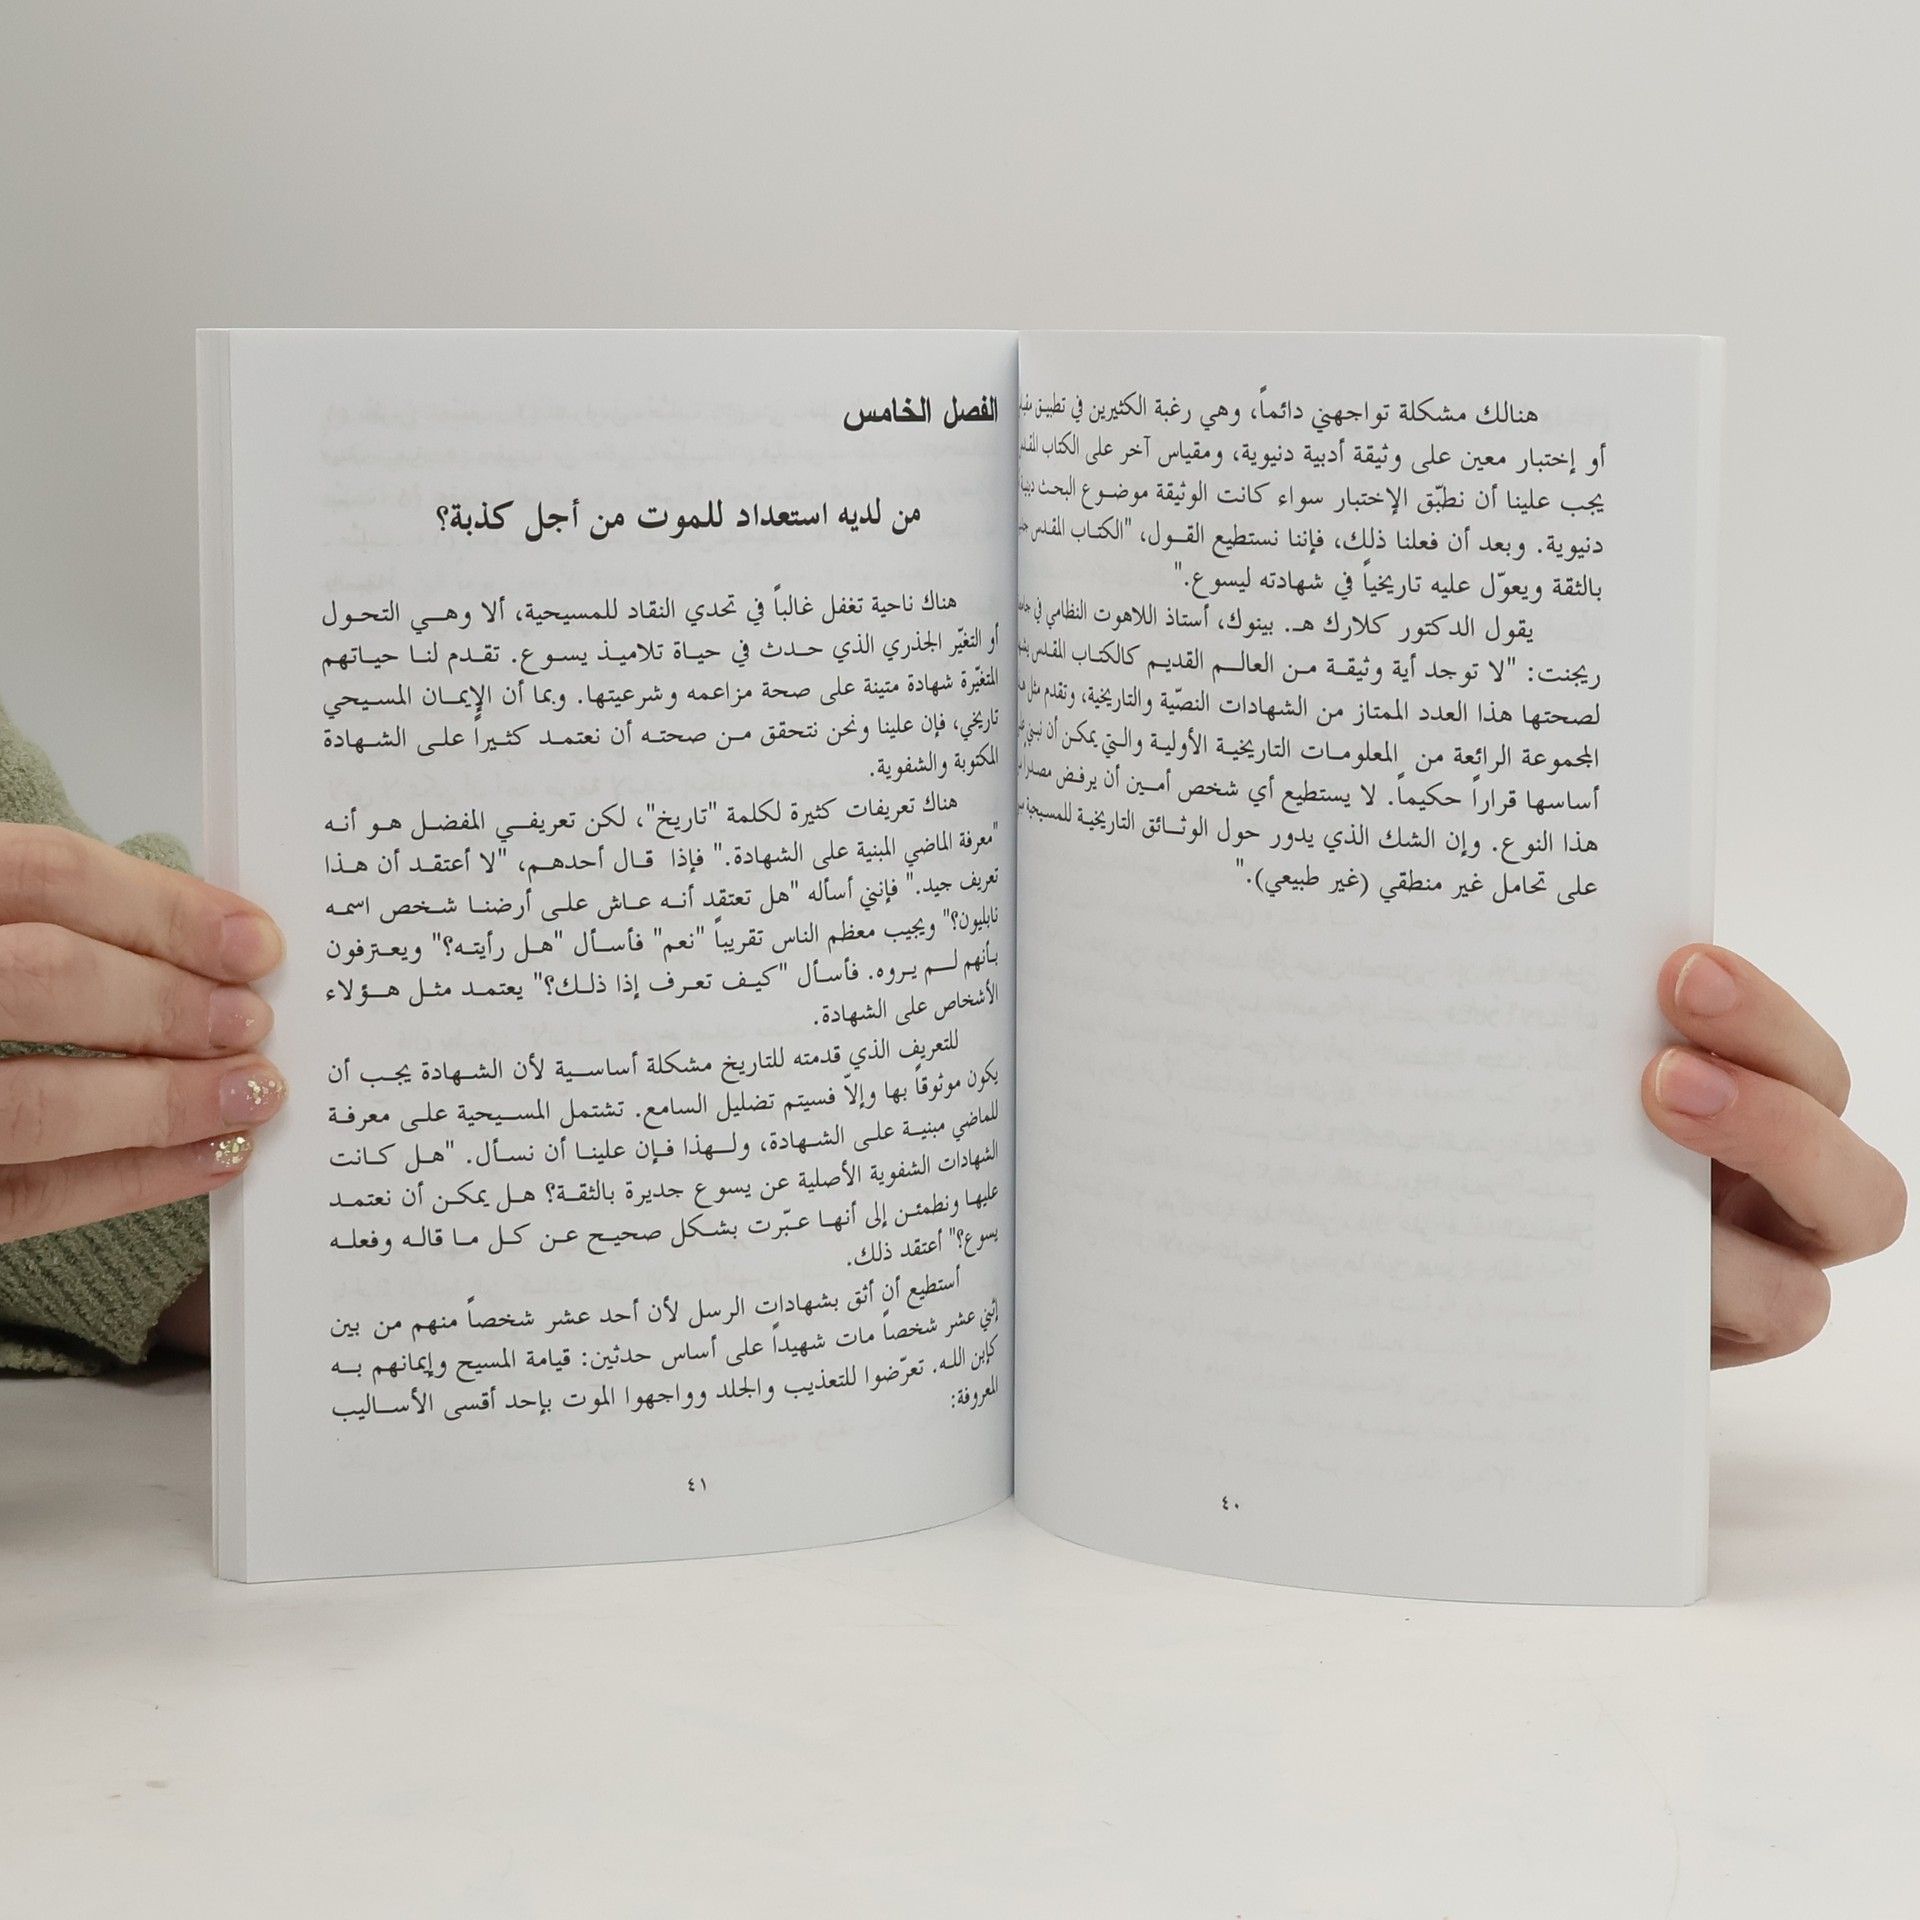 هنالك مشكلة تواجهني دائماً، وهي رغبة الكثيرين في تطبيق
أو إختبار معين على وثيقة أدبية دنيوية، ومقياس آخر على الكتاب المقدس
يجب علينا أن نطبّق الإختبار سواء كانت الوثيقة موضوع البحث
دنيوية. وبعد أن فعلنا ذلك، فإننا نستطيع القول، "الكتاب المقدس
بالثقة ويعوّل عليه تاريخياً في شهادته ليسوع."
يقول الدكتور كلارك هـ. بينوك، أستاذ اللاهوت النظامي في
ريجنت: "لا توجد أية وثيقة من العالم القديم كالكتاب المقدس
لصحتها هذا العدد الممتاز من الشهادات النصّية والتاريخية، وتقدم مثل
المجموعة الرائعة من المعلومات التاريخية الأولية والتي يمكن أن نبني
أساسها قراراً حكيماً. لا يستطيع أي شخص أمين أن يرفض
هذا النوع. وإن الشك الذي يدور حول الوثائق التاريخية للمسيحية
على تحامل غير منطقي (غير طبيعي)."
٤٠
الفصل الخامس
من لديه استعداد للموت من أجل كذبة؟
هناك ناحية تغفل غالباً في تحدي النقاد للمسيحية، ألا وهي التحول
أو التغيّر الجذري الذي حدث في حياة تلاميذ يسوع. تقدم لنا حياتهم
المتغيّرة شهادة متينة على صحة مزاعمه وشرعيتها. وبما أن الإيمان المسيحي
تاريخي، فإن علينا ونحن نتحقق من صحته أن نعتمد كثيراً على الشهادة
المكتوبة والشفوية.
هناك تعريفات كثيرة لكلمة "تاريخ"، لكن تعريفي المفضل هو أنه
"معرفة الماضي المبنية على الشهادة." فإذا قال أحدهم، "لا أعتقد أن هذا
تعريف جيد." فإنني أسأله "هل تعتقد أنه عاش على أرضنا شخص اسمه
نابليون؟" ويجيب معظم الناس تقريباً "نعم" فأسأل "هل رأيته؟" ويعترفون
بأنهم لم يروه. فأسأل "كيف تعرف إذا ذلك؟" يعتمد مثل هؤلاء
الأشخاص على الشهادة.
للتعريف الذي قدمته للتاريخ مشكلة أساسية لأن الشهادة يجب أن
يكون موثوقاً بها وإلاّ فسيتم تضليل السامع. تشتمل المسيحية على معرفة
للماضي مبنية على الشهادة، ولهذا فإن علينا أن نسأل. "هل كانت
الشهادات الشفوية الأصلية عن يسوع جديرة بالثقة؟ هل يمكن أن نعتمد
عليها ونطمئن إلى أنها عبّرت بشكل صحيح عن كل ما قاله وفعله
يسوع؟" أعتقد ذلك.
أستطيع أن أثق بشهادات الرسل لأن أحد عشر شخصاً منهم من بين
إثني عشر شخصاً مات شهيداً على أساس حدثين: قيامة المسيح وإيمانهم به
كإبن الله. تعرّضوا للتعذيب والجلد وواجهوا الموت بإحد أقسى الأساليب
المعروفة:
٤١